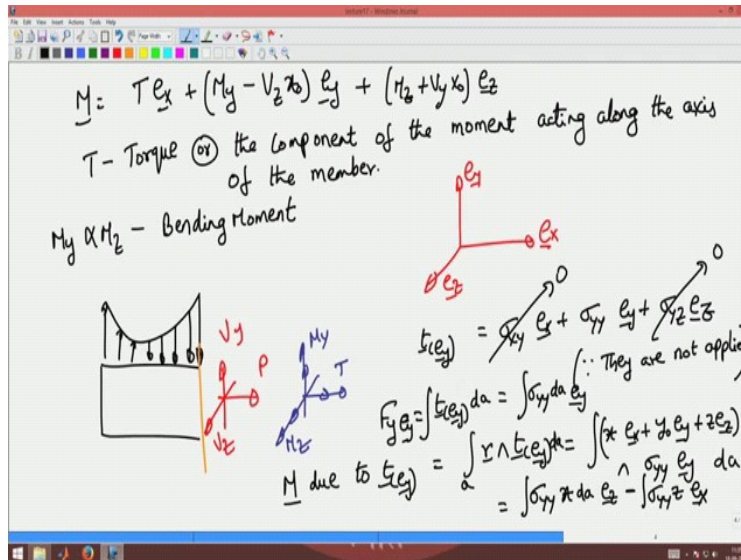 lecture17 - Windows Journal
File Edit View Insert Actions Tools Help
Page Width
M = T ex + (My - Vz x0) ey + (Mz + Vy x0) ez
T - Torque or the component of the moment acting along the axis
of the member.
My & Mz - Bending Moment
ey
ex
ez
Vy
P
Vz
My
T
Mz
t(ey) = σxy ex + σyy ey + σyz ez
0
0
(∵ They are not applie
Fy ey = ∫ t(ey) da = ∫ σyy da ey
M due to t(ey) = ∫a r ∧ t(ey) da = ∫ (x ex + y0 ey + z ez)
∧ σyy ey da
= ∫ σyy x da ez - ∫ σyy z ex